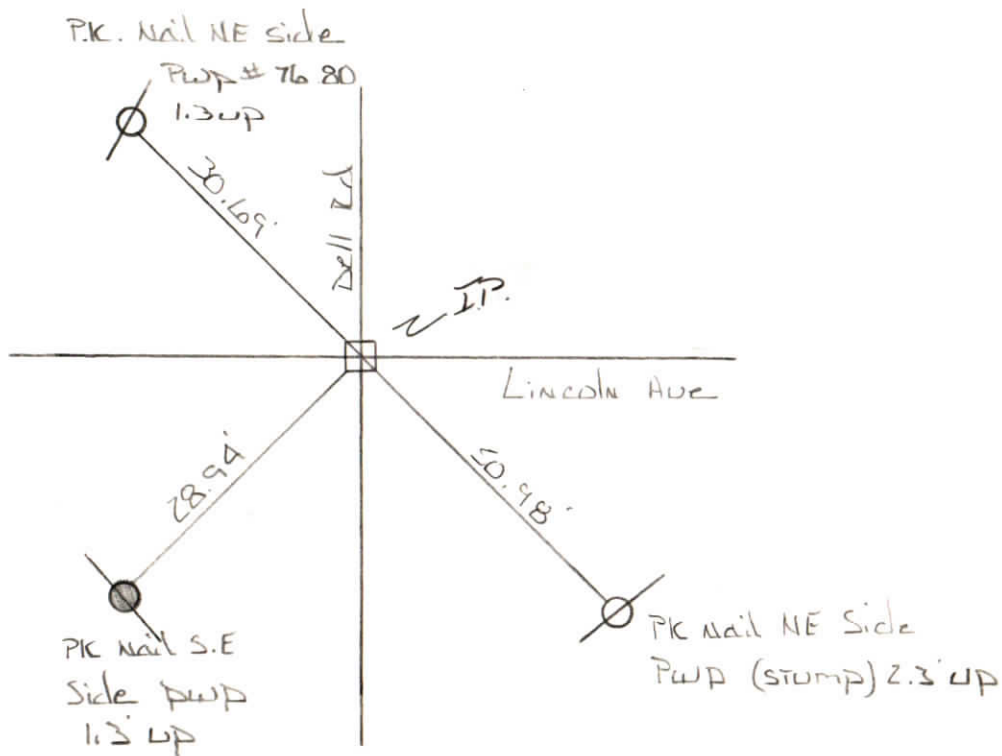 P.K. Nail NE Side
Pwp # 76 80
1.3 up
30.69'
Dell Rd
I.P.
Lincoln Ave
28.94'
50.98'
PK Nail S.E
Side pwp
1.3' up
PK Nail NE Side
Pwp (stump) 2.3' up